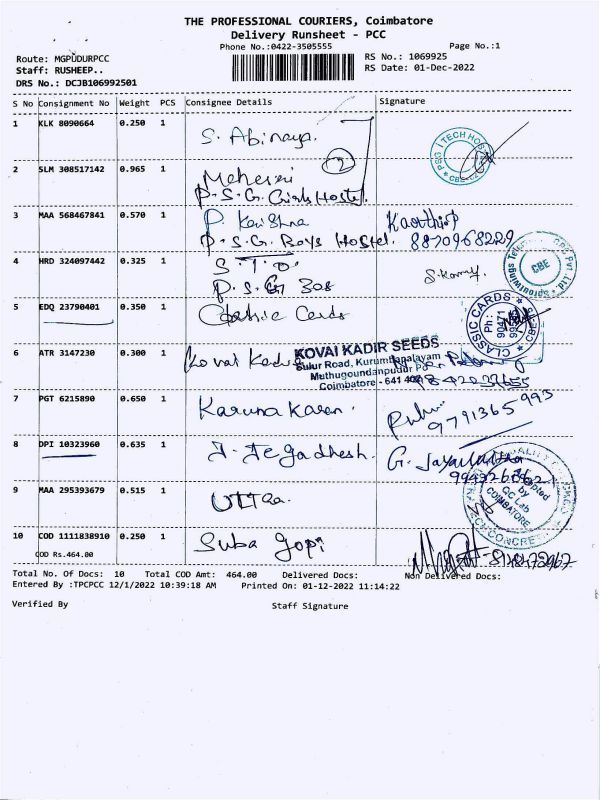 THE PROFESSIONAL COURIERS, Coimbatore
Delivery Runsheet - PCC
Phone No.:0422-3505555 Page No.:1
Route: MGPUDURPCC RS No.: 1069925
Staff: RUSHEEP.. RS Date: 01-Dec-2022
DRS No.: DCJB106992501
S No Consignment No Weight PCS Consignee Details Signature
1 KLK 8090664 0.250 1 S. Abinaya.
PSG I TECH HOS
2 SLM 308517142 0.965 1
2
P.S.G Girls Hostel.
3 MAA 568467841 0.570 1 P. Krishna
P.S.G. Boys Hostel. 8870968229
4 HRD 324097442 0.325 1 S.T.O
P.S.G 308
CBE
5 EDQ 23790401 0.350 1 Classic Cards
CLASSIC CARDS
Ph :
90471
CBE
6 ATR 3147230 0.300 1 Kovai Kadir
KOVAI KADIR SEEDS
Sulur Road, Kurumbapalayam
Muthugoundanpudur Po
Coimbatore - 641 406
9842039655
7 PGT 6215890 0.650 1 Karunakaran.
9791365993
8 DPI 10323960 0.635 1 J. Jegadhesh. G.
Accepted
by
QC Lab
COIMBATORE
CONCRETE
9 MAA 295393679 0.515 1
10 COD 1111838910 0.250 1 Suba gopi
COD Rs.464.00
Total No. Of Docs: 10 Total COD Amt: 464.00 Delivered Docs: Non Delivered Docs:
Entered By :TPCPCC 12/1/2022 10:39:18 AM Printed On: 01-12-2022 11:14:22
Verified By Staff Signature